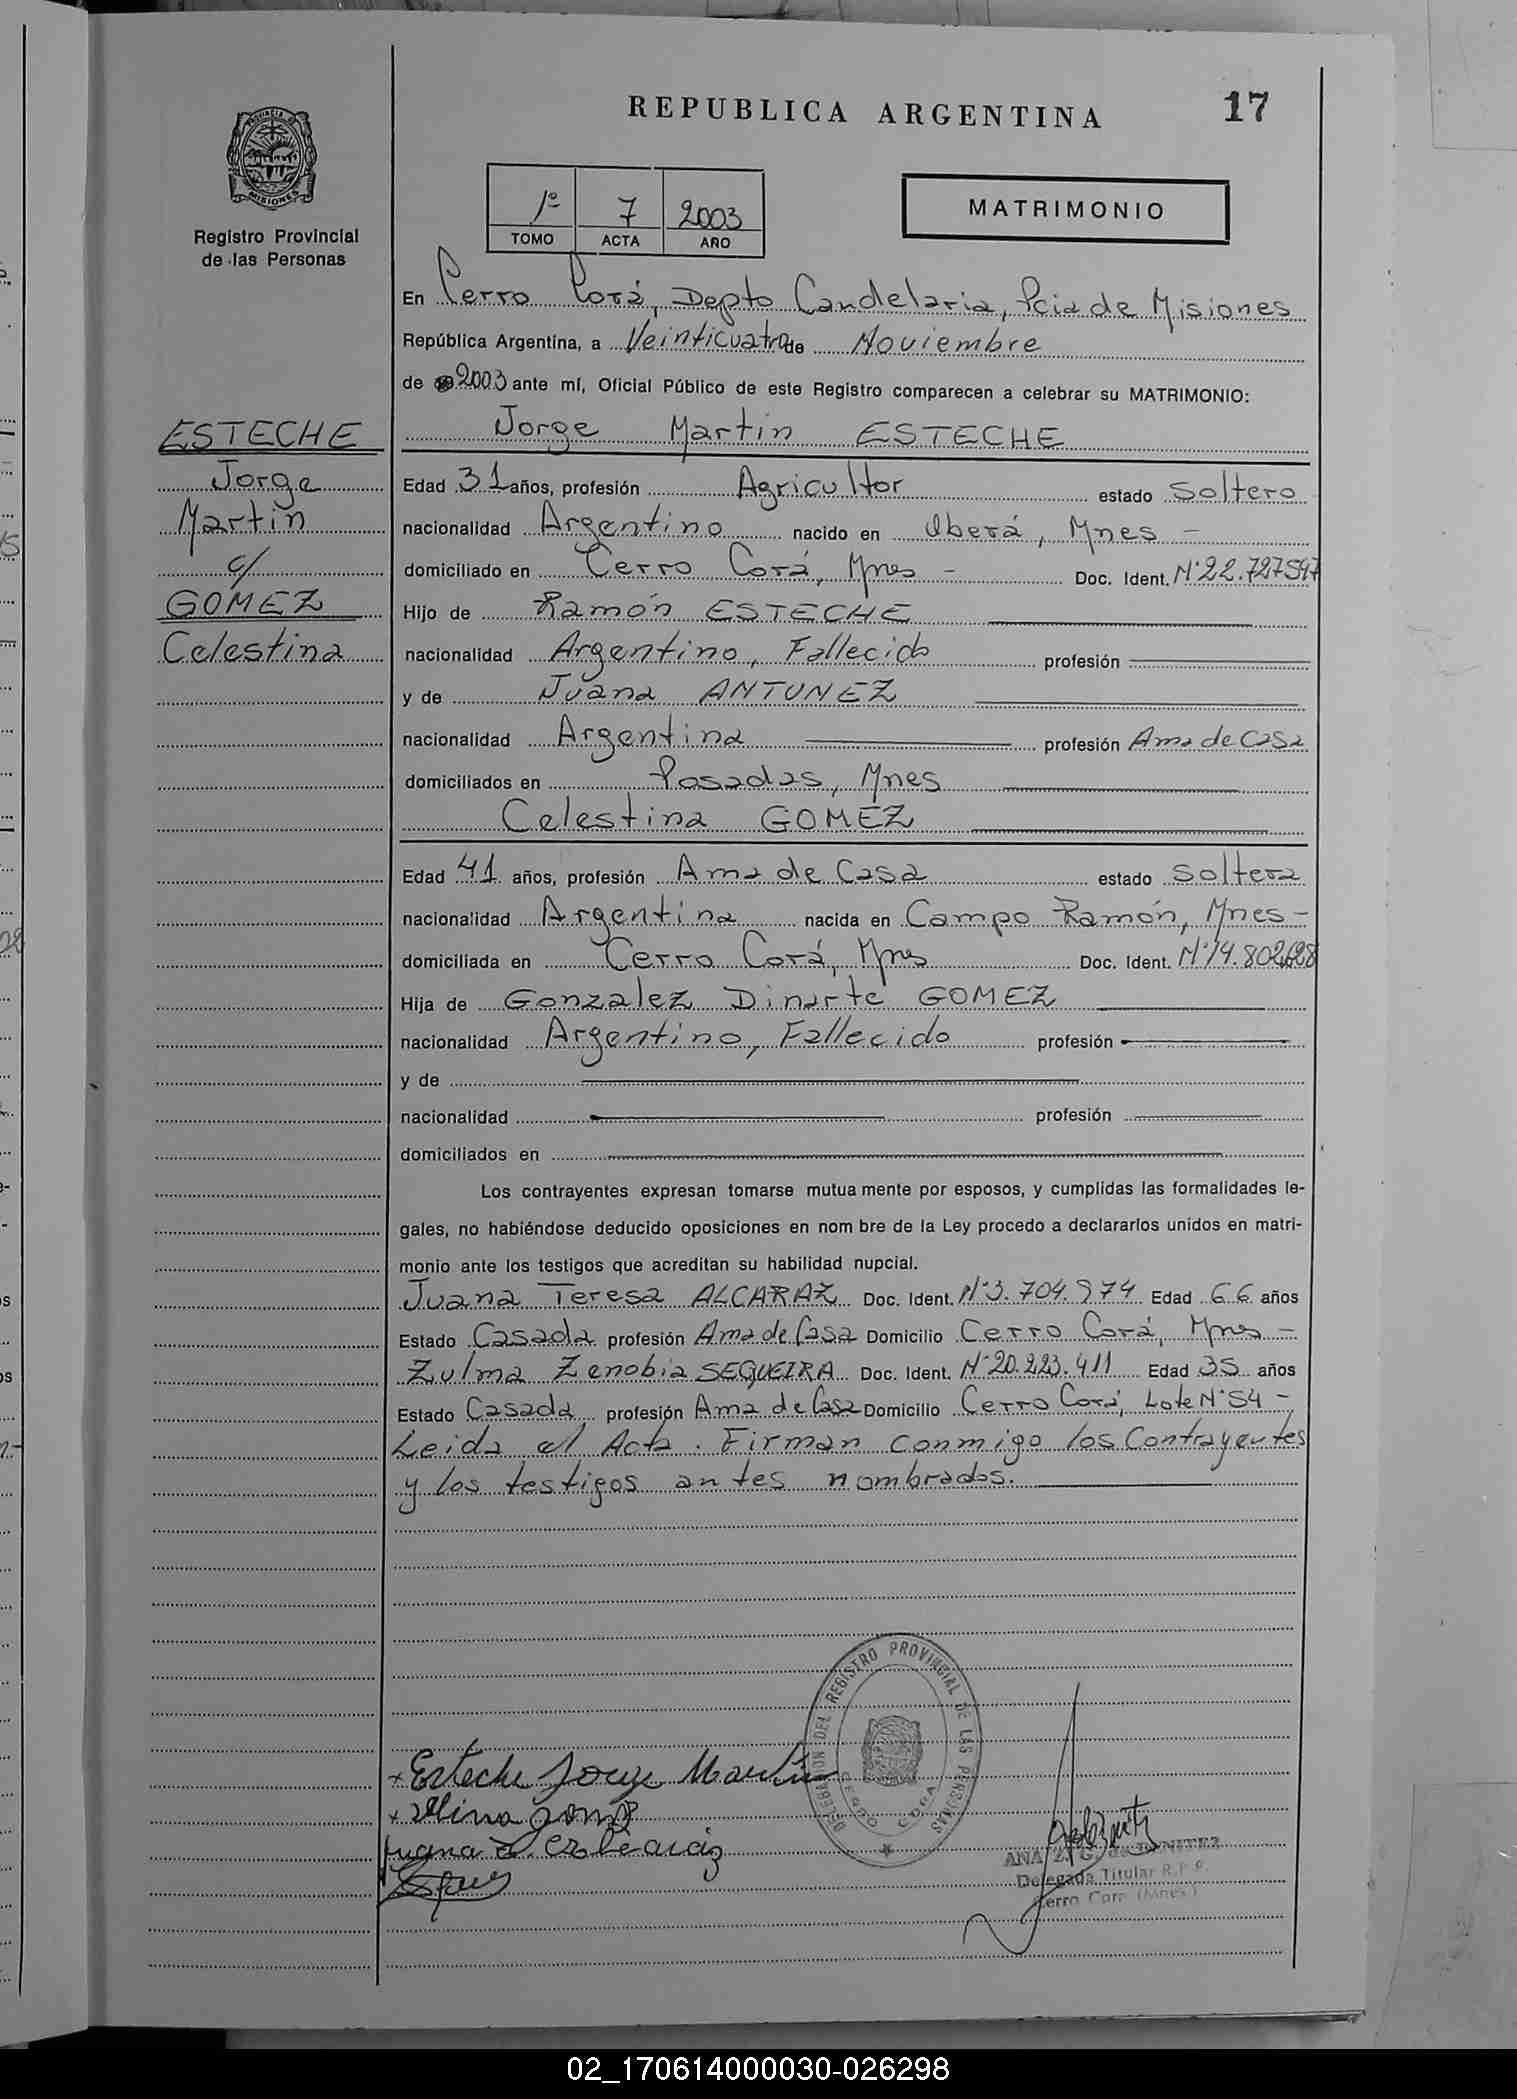 REPUBLICA ARGENTINA
17
PROVINCIA DE MISIONES
Registro Provincial
de las Personas
1º 7 2003
TOMO ACTA AÑO
MATRIMONIO
En Cerro Corá, Depto Candelaria, Pcia de Misiones
República Argentina, a Veinticuatro de Noviembre
de 2003 ante mí, Oficial Público de este Registro comparecen a celebrar su MATRIMONIO:
ESTECHE
Jorge
Martin
c/
GOMEZ
Celestina
Jorge Martin ESTECHE
Edad 31 años, profesión Agricultor estado Soltero
nacionalidad Argentino nacido en Oberá, Mnes -
domiciliado en Cerro Corá, Mnes - Doc. Ident. Nº 22.727547
Hijo de Ramón ESTECHE
nacionalidad Argentino, Fallecido profesión
y de Juana ANTUNEZ
nacionalidad Argentina profesión Ama de Casa
domiciliados en Posadas, Mnes
Celestina GOMEZ
Edad 41 años, profesión Ama de Casa estado Soltera
nacionalidad Argentina nacida en Campo Ramón, Mnes -
domiciliada en Cerro Corá, Mnes Doc. Ident. Nº 14.802628
Hija de Gonzalez Dinarte GOMEZ
nacionalidad Argentino, Fallecido profesión
y de
nacionalidad profesión
domiciliados en
Los contrayentes expresan tomarse mutua mente por esposos, y cumplidas las formalidades le-
gales, no habiéndose deducido oposiciones en nom bre de la Ley procedo a declararlos unidos en matri-
monio ante los testigos que acreditan su habilidad nupcial.
Juana Teresa ALCARAZ Doc. Ident. Nº 3.704.974 Edad 66 años
Estado Casada profesión Ama de Casa Domicilio Cerro Corá, Mnes -
Zulma Zenobia SEQUEIRA Doc. Ident. Nº 20.223.411 Edad 35 años
Estado Casada profesión Ama de Casa Domicilio Cerro Corá, Lote Nº 54 -
Leida el Acta. Firman conmigo los Contrayentes
y los testigos antes nombrados.
DELEGACION DEL REGISTRO PROVINCIAL DE LAS PERSONAS
CERRO CORA
Esteche Jorge Martin
Juana
ANA de BENITEZ
Delegada Titular R.P.P.
Cerro Cora (Mnes.)
02_170614000030-026298